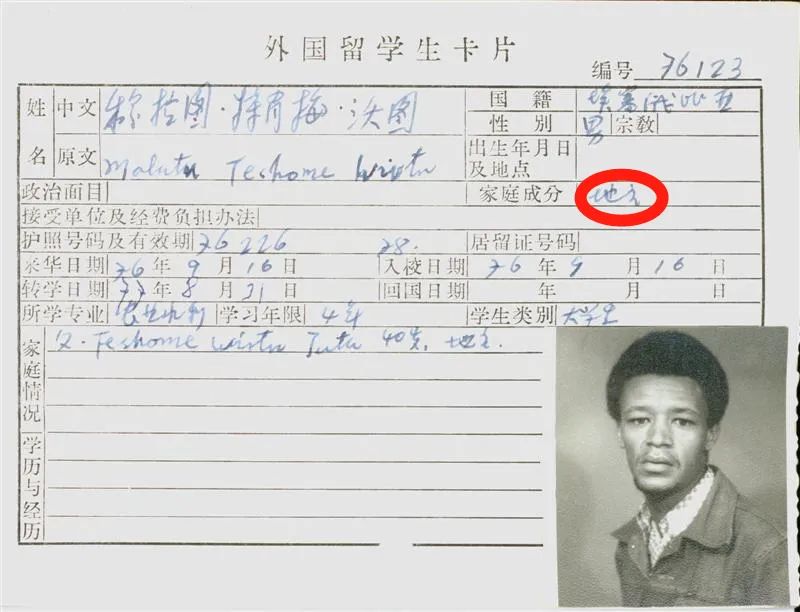 外国留学生卡片
编号 76123
姓名 中文 穆拉图·特肖梅·沃图 国籍 埃塞俄比亚
性别 男 宗教
原文 Mulatu Teshome Wirtu 出生年月日及地点
政治面目 家庭成分 地主
接受单位及经费负担办法
护照号码及有效期 76226 78. 居留证号码
来华日期 76年9月16日 入校日期 76年9月16日
转学日期 77年8月31日 回国日期 年 月 日
所学专业 学习年限 4年 学生类别 大学生
家庭情况 父·Teshome Wirtu Tutu 40岁, 地主.
学历与经历